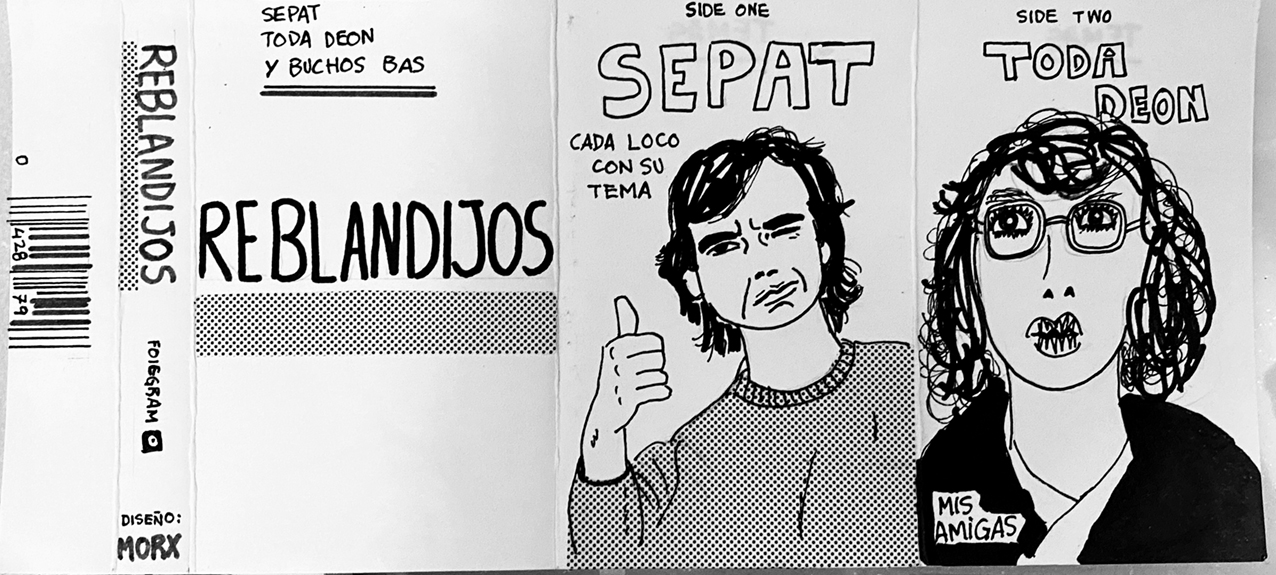 0
428
79
REBLANDIJOS
FOIGGRAM
DISEÑO:
MORX
SEPAT
TODA DEON
Y BUCHOS BAS
REBLANDIJOS
SIDE ONE
SEPAT
CADA LOCO
CON SU
TEMA
SIDE TWO
TODA
DEON
MIS
AMIGAS